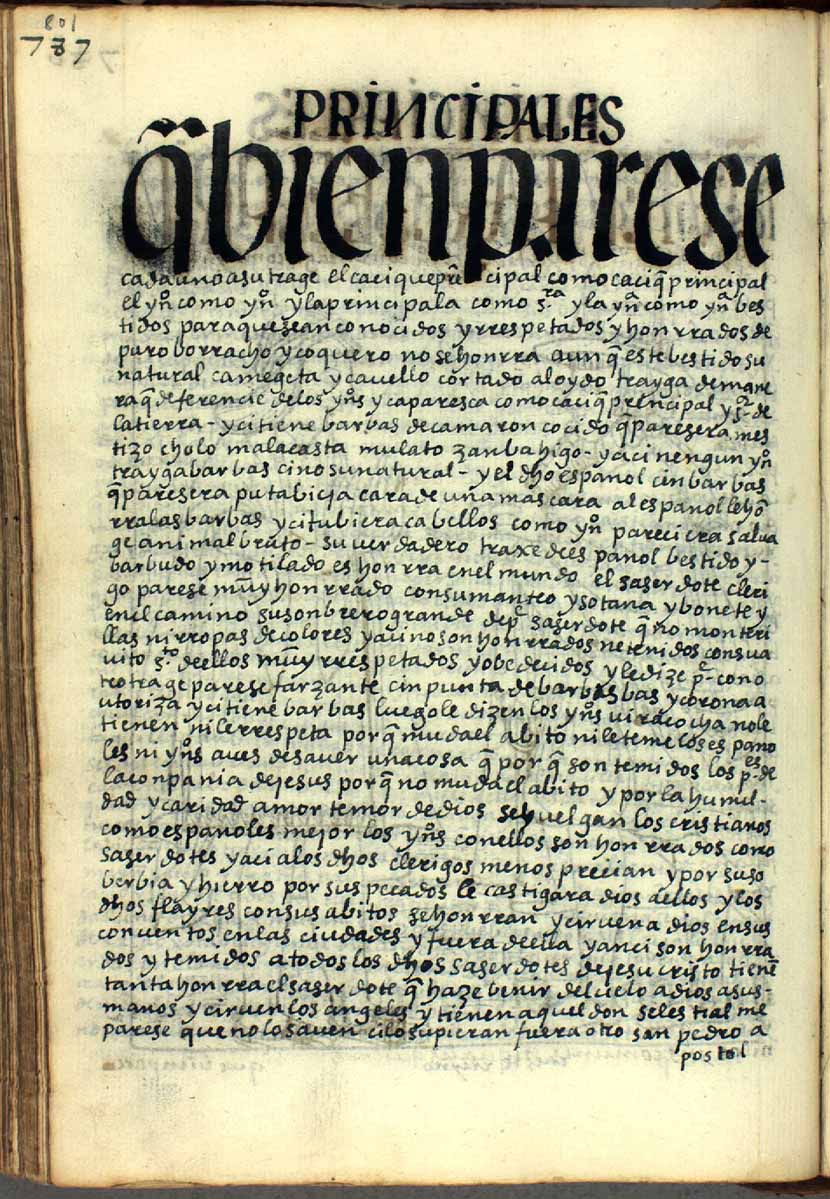 801
787
PRINCIPALES
q̃ bien parese
cada uno a su trage el cacique prĩ cipal como caciq̃ principal
el yn̊ como yn̊ y la principala como s.ra y la yn̄a como yn̄a bes
tidos para que sean conocidos y rrespetados y honrrados de
puro borracho y coquero no se honrra aunq̃ este bestido su
natural camegeta y cavello cortado al oydo trayga de mane
ra q̃ deferencie de los yn̊s y ca paresca como caciq̃ prencipal y s.r de
la tierra - y ci tiene barbas de camaron cocido q̃ paresera mes
tizo cholo mala casta mulato zanbahigo - y aci nengun yn̊
trayga barbas cino su natural - y el dho español cin barbas
q̃ paresera puta bieja cara de una mascara al español le hõ
rra las barbas y ci tubiera cabellos como yn̊ pareciera salua
ge animal bruto - su verdadero traxe de español bestido y -
barbudo y motilado es honrra en el mundo el saserdote cleri
go parese muy honrrado con su manteo y sotana y bonete y
en el camino su sonbrero grande de p.e saserdote q̃ no monteri
llas ni rropas de colores y aci no son honrrados ne tenidos con su a
uito s.to de ellos muy rrespetados y obedecidos y le dize p.e con o
tro trage parese farzante cin punta de barbas bas y corona a
utoriza y ci tiene barbas luego le dizen los yn̊s uiracocha no le
tienen ni le rrespeta porq̃ muda el abito ni le teme los espano
les ni yn̊s aues de sauer una cosa q̃ por q̃ son temidos los p.es de
la conpania de jesus porq̃ no muda el abito y por la humil-
dad y caridad amor temor de dios se huelgan los cristianos
como españoles mejor los yn̊s con ellos son honrrados como
saserdotes y aci a los dhos clerigos menos precian y por su so
berbia y hierro por sus pecados le castigara dios a ellos y los
dhos flayres con sus abitos se honrran y ciruen a dios en sus
conuentos en las ciudades y fuera de ella y anci son honrra
dos y temidos a todos los dhos saserdotes de jesucristo tienẽ
tanta honrra el saserdote q̃ haze benir del cielo a dios a sus-
manos y ciruen los angeles y tienen aquel don selestial me
parese que no lo sauen ci lo supieran fuera otro san pedro a
postol